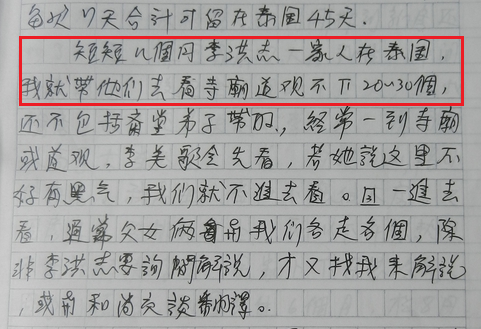 每次17天合計可留在泰国45天.
短短几個月李洪志一家人在泰国,
我就带他们去看寺廟道观不下20~30個,
还不包括齋堂弟子带的.,經常一到寺廟
或道观,李美歌会先看,若她說这里不
好有黑气,我们就不進去看。因一進去
看,通常父女俩會和我们各走各個,除
非李洪志要詢問解說,才又找我来解說
,或前和尚交談翻譯。